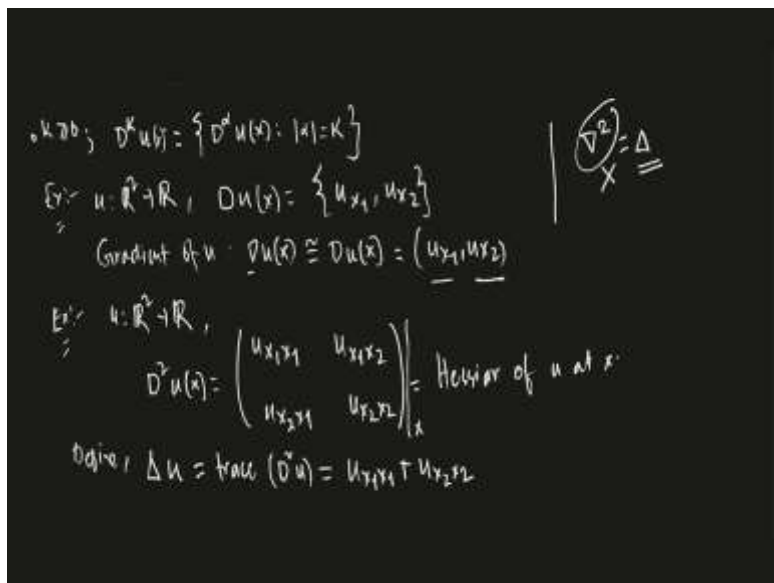 . k≥0; D^k u(x) = {D^α u(x) : |α| = k}
Ex:- u: ℝ² → ℝ, Du(x) = {u_{x_1}, u_{x_2}}
Gradient of u. Du(x) ≅ Du(x) = (u_{x_1}, u_{x_2})
Ex:- u: ℝ² → ℝ,
D² u(x) = ( u_{x_1x_1} u_{x_1x_2}
u_{x_2x_1} u_{x_2x_2} )|_x = Hessian of u at x.
Define, Δu = trace (D²u) = u_{x_1x_1} + u_{x_2x_2}
∇² = Δ
X